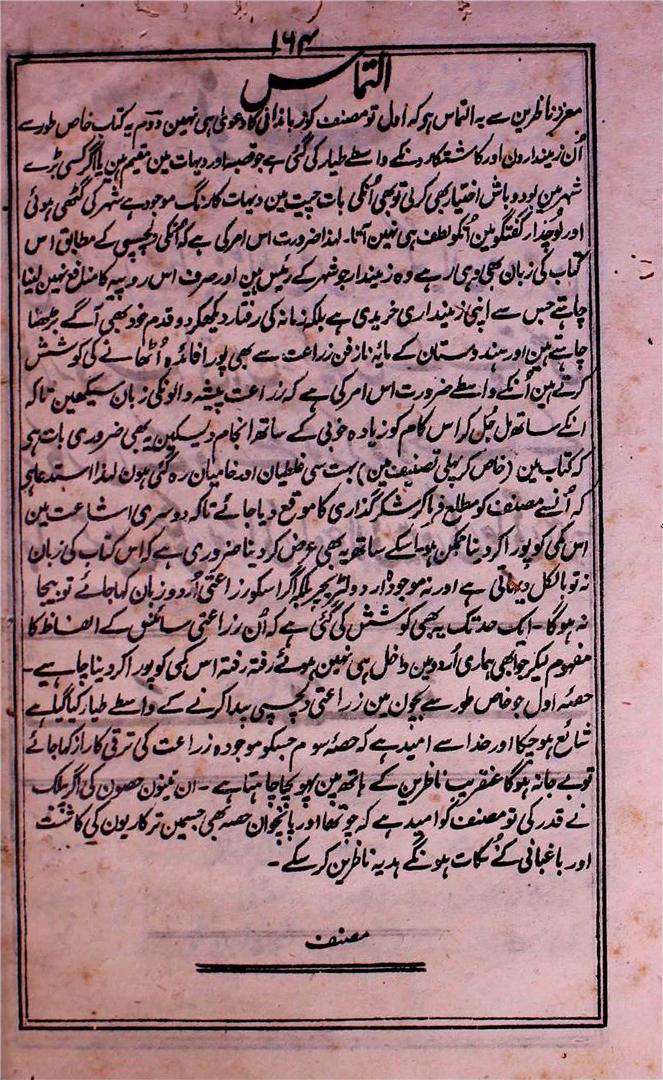 ۱۶۴
التماس
معزز ناظرین سے یہ التماس ہو کہ اول تو مصنف کو زباندانی کا دعویٰ ہی نہین دوم یہ کتاب خاص طور سے
اُن زمیندارون اور کاشتکارونکے واسطے طیار کی گئی ہے جو قصبہ اور دیہات مین مقیم ہین یا اگر کسی بڑے
شہر مین بود و باش اختیار بھی کرلی تو بھی اُنکی بات چیت مین دیہات کا رنگ موجود ہے شہر کی گٹھی ہوئی
اور لوچدار گفتگو مین اُنکو لطف ہی نہین آتا۔ لہذا ضرورت اس امر کی ہے کہ اُنکی دلچسپی کے مطابق اس
کتاب کی زبان بھی وہی رہے وہ زمیندار جو شہر کے رئیس ہین اور صرف اس روپیہ کا منافع نہین لینا
چاہتے جس سے اپنی زمینداری خریدی ہے بلکہ زمانہ کی رفتار دیکھکر دو قدم خود بھی آگے بڑھنا
چاہتے ہین اور ہندوستان کے مایۂ ناز فن زراعت سے بھی پورا فائدہ اُٹھانے کی کوشش
کرتے ہین اُنکے واسطے ضرورت اس امر کی ہے کہ زراعت پیشہ والونکی زبان سیکھین تاکہ
انکے ساتھ مل جُل کر اس کام کو زیادہ خوبی کے ساتھ انجام دیسکین یہ بھی ضروری بات ہی
کہ کتاب مین (خاص کر پہلی تصنیف مین) بہت سی غلطیان اور خامیان رہ گئی ہون لہذا استدعا ہی
کہ اُنسے مصنف کو مطلع فرما کر شکر گذاری کا موقع دیا جائے تاکہ دوسری اشاعت مین
اس کمی کو پورا کر دینا ممکن ہو۔ اسکے ساتھ یہ بھی عرض کر دینا ضروری ہے کہ اس کتاب کی زبان
نہ تو بالکل دیہاتی ہے اور نہ موجودہ اردو لٹریچر بلکہ اگر اسکو زراعتی اُردو زبان کہا جائے تو بیجا
نہ ہوگا۔ ایک حد تک یہ بھی کوشش کی گئی ہے کہ اُن زراعتی سائنس کے الفاظ کا
مفہوم لیکر جو ابھی ہماری اُردو مین داخل ہی نہین ہوئے رفتہ رفتہ اس کمی کو پورا کر دینا چاہیے۔
حصۂ اول جو خاص طور سے بچون مین زراعتی دلچسپی پیدا کرنے کے واسطے طیار کیا گیا ہے
شائع ہو چکا اور خدا سے امید ہے کہ حصۂ سوم جسکو موجودہ زراعت کی ترقی کا راز کہا جائے
تو بے جا نہ ہوگا عنقریب ناظرین کے ہاتھ مین پہونچا چاہتا ہے۔ ان تینون حصون کی اگر پبلک
نے قدر کی تو مصنف کو امید ہے کہ چوتھا اور پانچوان حصہ بھی جسمین ترکاریون کی کاشت
اور باغبانی کے نکات ہونگے ہدیہ ناظرین کر سکے۔
مصنف